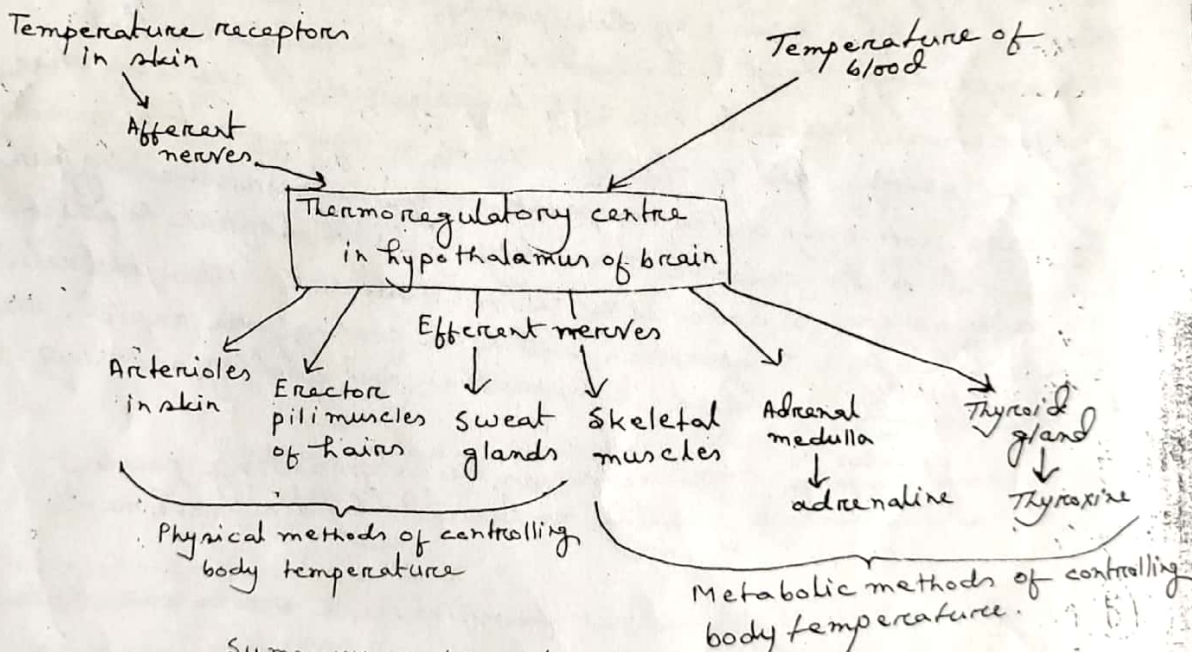 Temperature receptors
in skin
Temperature of
blood
Afferent
nerves
Thermoregulatory centre
in hypothalamus of brain
Efferent nerves
Arterioles
in skin
Erector
pili muscles
of hairs
Sweat
glands
Skeletal
muscles
Adrenal
medulla
adrenaline
Thyroid
gland
Thyroxine
Physical methods of controlling
body temperature
Metabolic methods of controlling
body temperature.